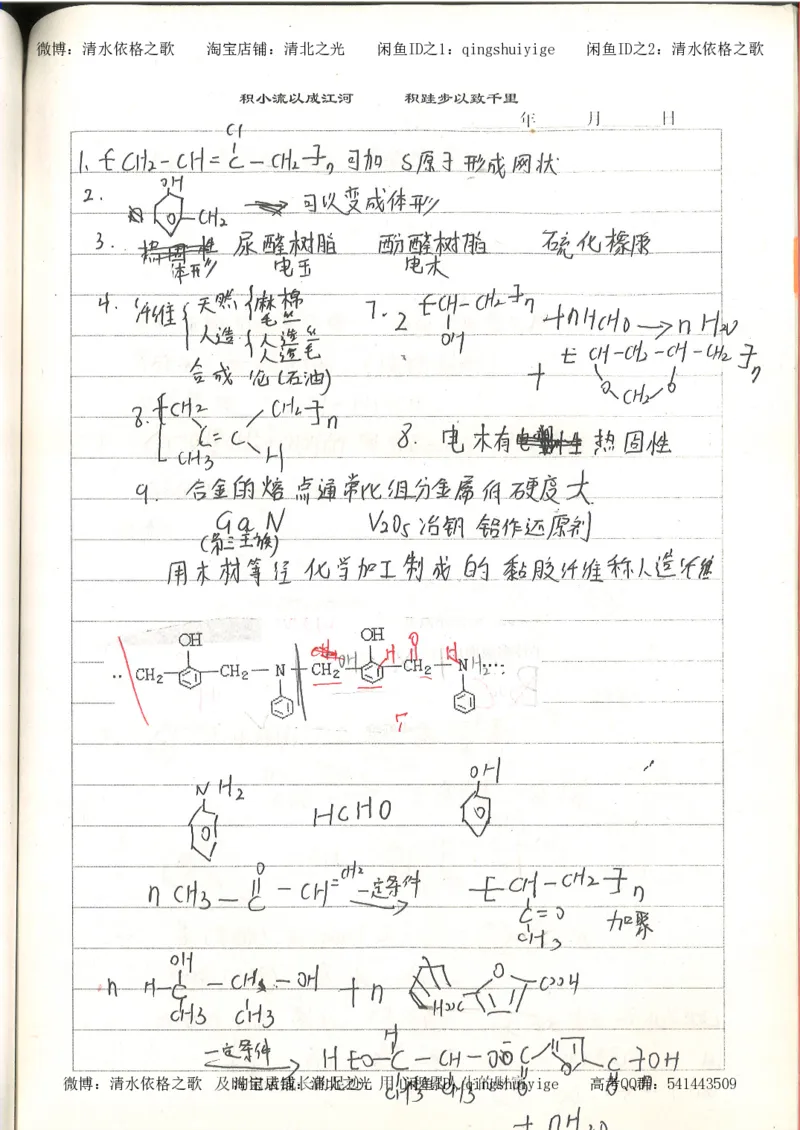 微博：清水依格之歌 淘宝店铺：清北之光 闲鱼ID之1：qingshuiyige 闲鱼ID之2：清水依格之歌
积小流以成江河 积跬步以致千里
年 月 日
Cl
1. [CH2-CH=C-CH2]n 可加 S原子形成网状
OH
2. -CH2 可以变成体形
3. 体形 尿醛树脂 酚醛树脂 硫化橡胶
电玉 电木
4. 纤维 天然 麻棉
毛丝
人造 人造丝
人造毛
合成 伦(石油)
7. 2 [CH-CH2]n + nHCHO → nH2O
OH
+ [CH-CH2-CH-CH2]n
O CH2 O
8. [CH2 CH2]n
C=C
CH3 H
8. 电木有 热固性
9. 合金的熔点通常比组分金属低 硬度大
GaN V2O5冶钒 铝作还原剂
(第三主族)
用木材等经化学加工制成的黏胶纤维称人造纤维
OH OH O
CH2 CH2 N CH2 OH H CH2 H N H2
7
NH2 HCHO OH
O
nCH3-C-CH=CH2 一定条件 [CH-CH2]n
C=O 加聚
CH3
OH
n H-C-CH-OH + n HOOC O COOH
CH3 CH3
一定条件 H
H[O-C-CH-OOC O C]OH
CH3 CH3 O
微博：清水依格之歌 淘宝店铺：清北之光 闲鱼ID：qingshuiyige 高考QQ群：541443509
+ nH2O